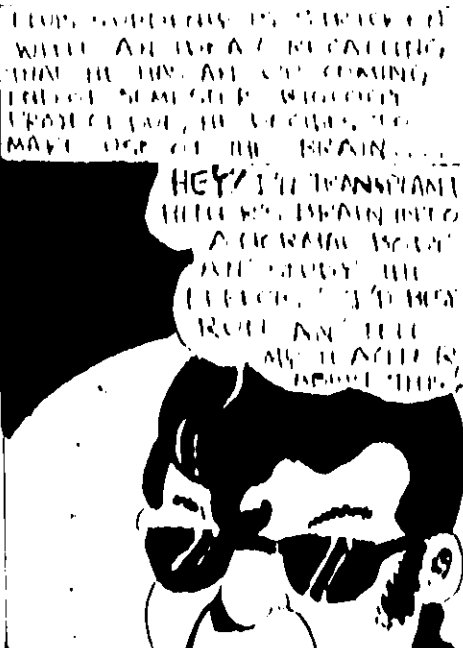 SUDDENLY IS STRICKEN
WITH AN IDEA! RECALLING
THAT HE HAS AN UP COMING
SEMESTER BIOLOGY
PROJECT DUE, HE DECIDES TO
MAKE USE OF THE BRAIN....
HEY! I'LL TRANSPLANT
HITLER'S BRAIN INTO
A NORMAL BODY
AN' STUDY THE
EFFECTS! I'D BEST
RUN AN' TELL
MY TEACHER
ABOUT THIS!